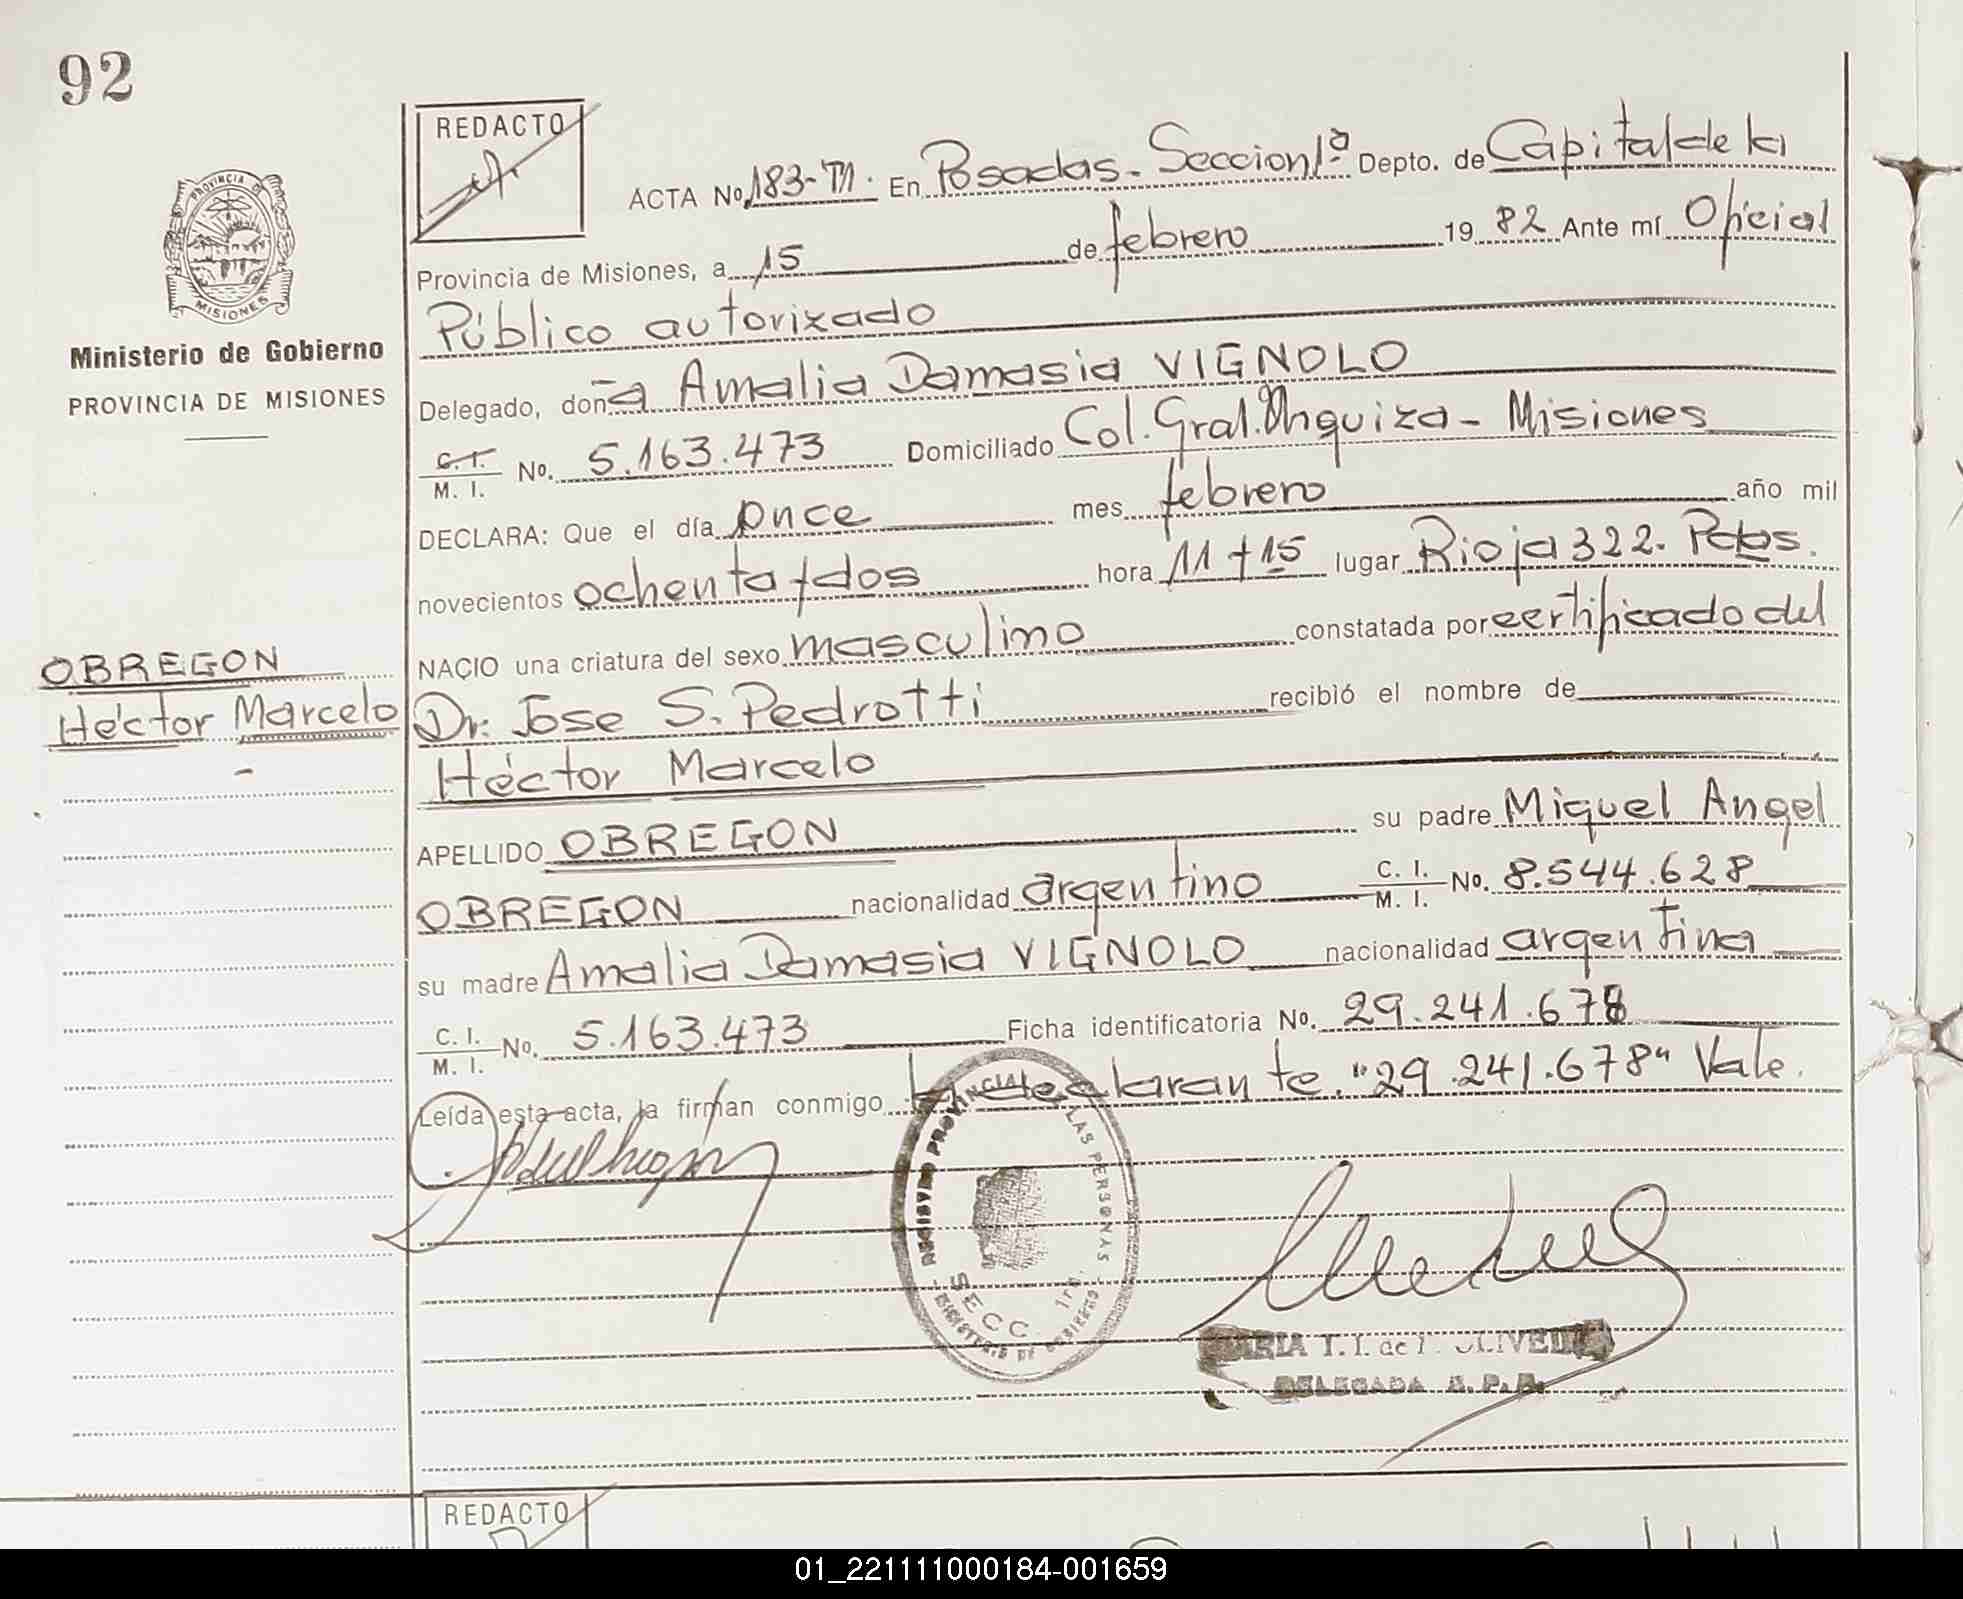 92
REDACTO
ACTA No. 183-M. En Posadas. Seccion 1ª Depto. de Capital de la
Provincia de Misiones, a 15 de febrero 19 82 Ante mí Oficial
Público autorizado
Ministerio de Gobierno
PROVINCIA DE MISIONES
Delegado, doña Amalia Damasia VIGNOLO
C. I. M. I. No. 5.163.473 Domiciliado Col. Gral. Urquiza - Misiones
DECLARA: Que el día once mes febrero año mil
novecientos ochenta y dos hora 11 y 15 lugar Rioja 322. Pdas.
NACIO una criatura del sexo masculino constatada por certificado del
Dr. Jose S. Pedrotti recibió el nombre de
Héctor Marcelo
OBREGON
Héctor Marcelo
APELLIDO OBREGON su padre Miguel Angel
OBREGON nacionalidad argentino C. I. M. I. No. 8.544.628
su madre Amalia Damasia VIGNOLO nacionalidad argentina
C. I. M. I. No. 5.163.473 Ficha identificatoria No. 29.241.678
Leída esta acta, la firman conmigo la declarante. "29.241.678" Vale.
REGISTRO PROVINCIAL DE LAS PERSONAS
SECC 1ra.
MINISTERIO DE GOBIERNO
DELEGADA
REDACTO
01_221111000184-001659